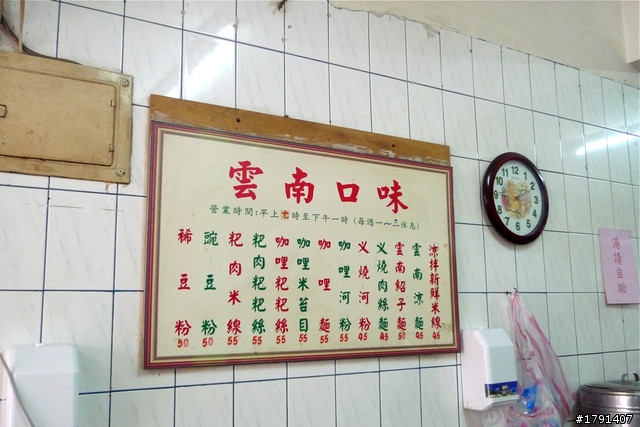 雲南口味
營業時間:早上七時至下午一時 (每週一~三休息)
涼拌新鮮米線 45
雲南涼麵 45
雲南紹子麵 50
义燒肉絲麵 45
义燒河粉 45
咖哩河粉 55
咖哩麵 55
咖哩米苔目 55
咖哩粑粑絲 55
粑肉粑粑絲 55
粑肉米線 55
豌豆粉 50
稀豆粉 50
湯請自助
12
1
2
3
4
5
6
7
8
9
10
11
#1791407